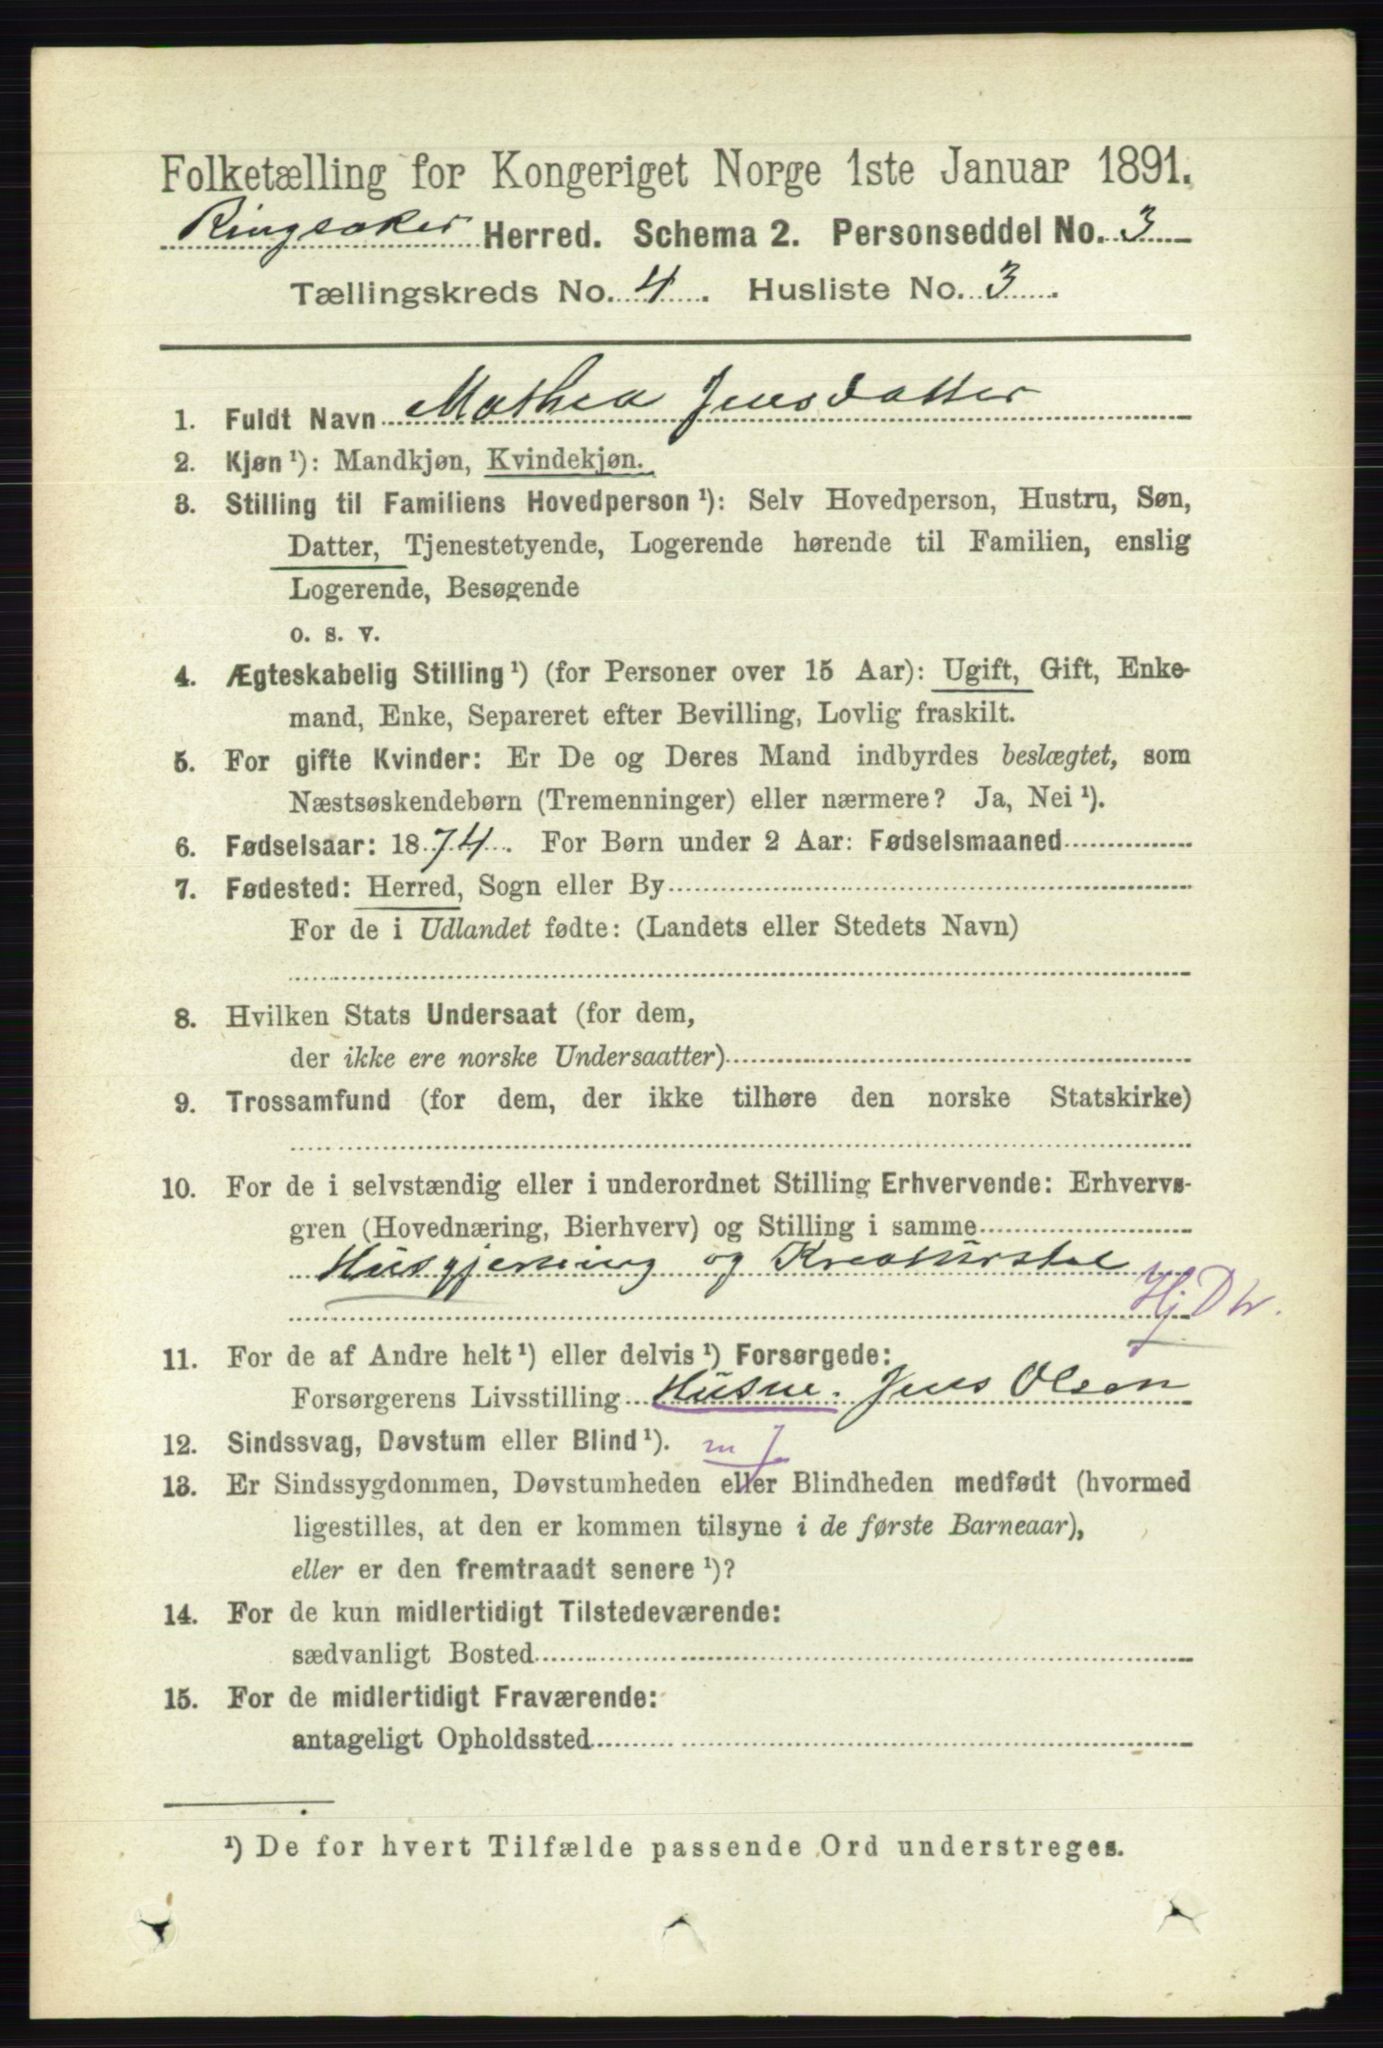 Folketælling for Kongeriget Norge 1ste Januar 1891.
Ringsaker Herred. Schema 2. Personseddel No. 3
Tællingskreds No. 4. Husliste No. 3.
1. Fuldt Navn Mathea Jensdatter
2. Kjøn ¹): Mandkjøn, Kvindekjøn.
3. Stilling til Familiens Hovedperson ¹): Selv Hovedperson, Hustru, Søn,
Datter, Tjenestetyende, Logerende hørende til Familien, enslig
Logerende, Besøgende
o. s. v.
4. Ægteskabelig Stilling ¹) (for Personer over 15 Aar): Ugift, Gift, Enke-
mand, Enke, Separeret efter Bevilling, Lovlig fraskilt.
5. For gifte Kvinder: Er De og Deres Mand indbyrdes beslægtet, som
Næstsøskendebørn (Tremenninger) eller nærmere? Ja, Nei ¹).
6. Fødselsaar: 1874. For Børn under 2 Aar: Fødselsmaaned
7. Fødested: Herred, Sogn eller By
For de i Udlandet fødte: (Landets eller Stedets Navn)
8. Hvilken Stats Undersaat (for dem,
der ikke ere norske Undersaatter)
9. Trossamfund (for dem, der ikke tilhøre den norske Statskirke)
10. For de i selvstændig eller i underordnet Stilling Erhvervende: Erhvervs-
gren (Hovednæring, Bierhverv) og Stilling i samme
Husgjerning og Kreaturstel
Hj. D
11. For de af Andre helt ¹) eller delvis ¹) Forsørgede:
Forsørgerens Livsstilling Husm. Jens Olsen
12. Sindssvag, Døvstum eller Blind ¹). m J
13. Er Sindssygdommen, Døvstumheden eller Blindheden medfødt (hvormed
ligestilles, at den er kommen tilsyne i de første Barneaar),
eller er den fremtraadt senere ¹)?
14. For de kun midlertidigt Tilstedeværende:
sædvanligt Bosted
15. For de midlertidigt Fraværende:
antageligt Opholdssted
¹) De for hvert Tilfælde passende Ord understreges.